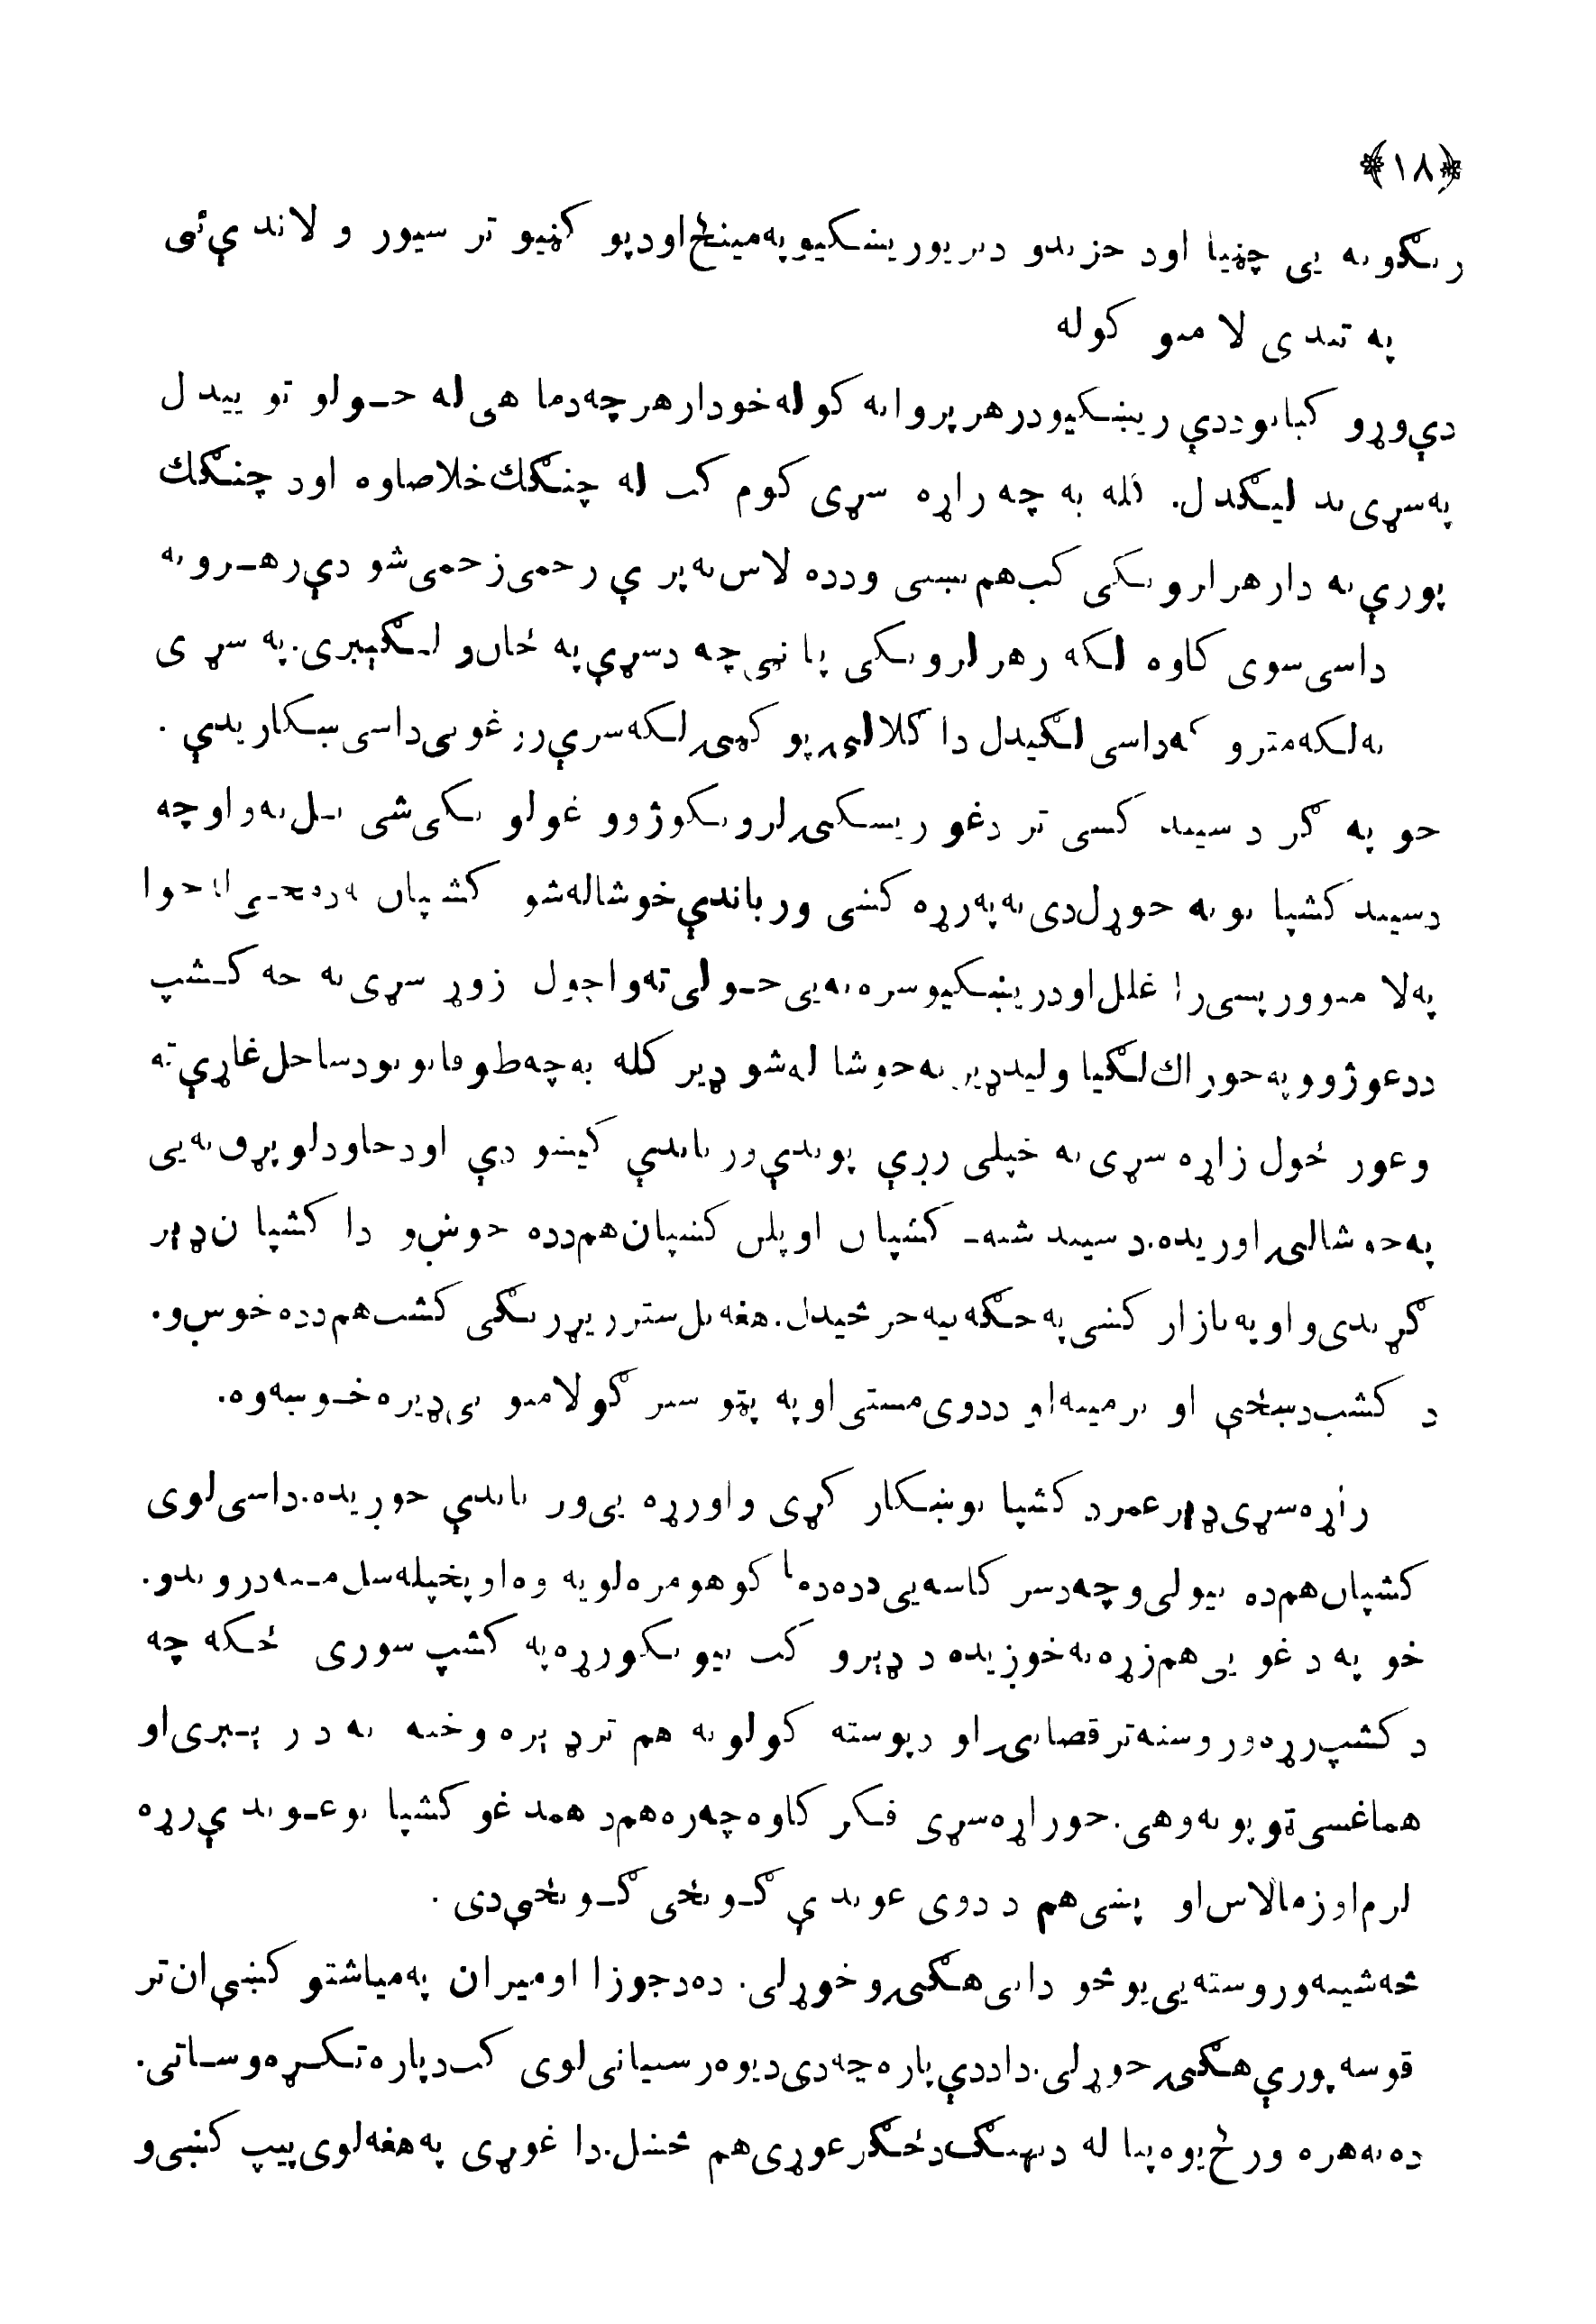 ﴿۱۸﴾
رنګونه یې چڼیا اود خزندو دنریورینسکیو په مینځ اودپو کڼیو تر سیور و لاندې ئی
په تندی لامبو کوله
دې وړو کبانو ددې رینسکیو درهر پروانه کوله خودار هر چه دما هی له خولو تو ییدل
په سړی بد لیګدل. کله به چه زاړه سړی کوم کب له چنګک خلاصاوه اود چنګک
پورې به دا زهر لرونکی کب هم نښتی ودده لاس به پرې زخمی زخمی شو دې زهرونه
داسی سوی کاوه لکه زهر لرونکی پاڼی چه دسړې په ځان و لګېږی. په سړی
به لکه متروکه داسی لګیدل دا ګلالۍ پوکڼۍ لکه سرې زرغونی داسی ښکاریدې.
خو په ګرد سیند کښی تر دغو رینسکۍ لرونکوژوو غولونکی شی بل نه و او چه
دسیند کشپانو به خوړل دی به په زړه کښی ورباندې خوشاله شو کشپان به دمخی لا خوا
په لامبو ورپسی را غلل اود رینسکیو سره به یی خولی ته واچول زوړ سړی به چه کشپ
ددغو ژوو په خوراک لګیا ولید ډیر به خوشاله شو ډیر کله به چه طوفانونو دساحل غاړې ته
وغورځول زاړه سړی به خپلی زبږې پوندې ورباندې کیښودې اود چاودلو پړق به یی
په خوشالۍ اوریده. د سیند شنه کشپان او پلن کشپان هم دده خوښ و دا کشپان ډېر
ګړندی و او په بازار کښی په جګه بیه خرڅیدل. هغه بل ستر زیړ رنګی کشپ هم دده خوښ و.
د کشپ دښځې او نر مینه او ددوی مستی او په پټو سترګو لامبو یی ډیره خوښه وه.
زاړه سړی ډېر عمر د کشپانو ښکار کړی و او زړه یی ور باندې خوږیده. داسی لوی
کشپان هم ده نیولی و چه دسر کاسه یی دده دمانکو هومره لویه وه او پخپله سل منه دروند و.
خو په دغو یی هم زړه نه خوږیده د ډېرو کب نیونکو زړه په کشپ سوری ځکه چه
د کشپ زړه وروسته تر قصابۍ او د پوسته کولو نه هم تر ډېره وخته نه درېږی او
هماغسی ټوپونه وهی. خو زاړه سړی فکر کاوه چه زه هم د همدغو کشپانو غوندې زړه
لرم او زما لاس او پښی هم د دوی غوندې ګونځی ګونځې دی.
څه شیبه وروسته یی یو څو دانی هګۍ وخوړلی. ده د جوزا او میزان په میاشتو کښې ان تر
قوسه پورې هګۍ خوړلی. دا ددې پاره چه دی دیوه رسیانی لوی کب دپاره تکړه وساتی.
ده به هره ورځ یوه پیاله دنهنګ دځګر غوړی هم څښل. دا غوړی په هغه لوی پیپ کښی و